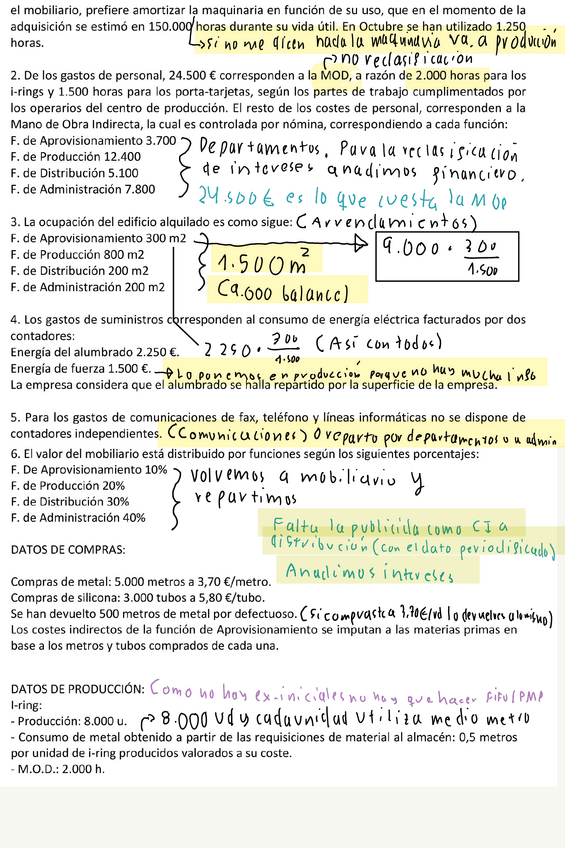 el mobiliario, prefiere amortizar la maquinaria en función de su uso, que en el momento de la
adquisición se estimó en 150.000 horas durante su vida útil. En Octubre se han utilizado 1.250
horas.
si no me dicen nada la maquinaria va a producción
no reclasificación
2. De los gastos de personal, 24.500 € corresponden a la MOD, a razón de 2.000 horas para los
i-rings y 1.500 horas para los porta-tarjetas, según los partes de trabajo cumplimentados por
los operarios del centro de producción. El resto de los costes de personal, corresponden a la
Mano de Obra Indirecta, la cual es controlada por nómina, correspondiendo a cada función:
F. de Aprovisionamiento 3.700
F. de Producción 12.400
F. de Distribución 5.100
F. de Administración 7.800
Departamentos. Para la reclasificación
de intereses anadimos financiero.
24.500€ es lo que cuesta la MOD
3. La ocupación del edificio alquilado es como sigue: (Arrendamientos)
F. de Aprovisionamiento 300 m2
F. de Producción 800 m2
F. de Distribución 200 m2
F. de Administración 200 m2
1.500m²
(9.000 balance)
9.000 · 300/1.500
4. Los gastos de suministros corresponden al consumo de energía eléctrica facturados por dos
contadores:
Energía del alumbrado 2.250 €.
2250 · 300/1.500 (Así con todos)
Energía de fuerza 1.500 €. → Lo ponemos en producción porque no hay mucha info
La empresa considera que el alumbrado se halla repartido por la superficie de la empresa.
5. Para los gastos de comunicaciones de fax, teléfono y líneas informáticas no se dispone de
contadores independientes. (Comunicaciones) O reparto por departamentos o a admin
6. El valor del mobiliario está distribuido por funciones según los siguientes porcentajes:
F. De Aprovisionamiento 10%
F. de Producción 20%
F. de Distribución 30%
F. de Administración 40%
volvemos a mobiliario y
repartimos
Falta la publicida como CI a
distribución (con el dato periodificado)
Anadimos intereses
DATOS DE COMPRAS:
Compras de metal: 5.000 metros a 3,70 €/metro.
Compras de silicona: 3.000 tubos a 5,80 €/tubo.
Se han devuelto 500 metros de metal por defectuoso. (si compraste a 3,70€/ud lo devuelves a lo mismo)
Los costes indirectos de la función de Aprovisionamiento se imputan a las materias primas en
base a los metros y tubos comprados de cada una.
DATOS DE PRODUCCIÓN: Como no hay ex.iniciales no hay que hacer FIFO/PMP
I-ring:
- Producción: 8.000 u. 8.000 ud y cada unidad utiliza medio metro
- Consumo de metal obtenido a partir de las requisiciones de material al almacén: 0,5 metros
por unidad de i-ring producidos valorados a su coste.
- M.O.D.: 2.000 h.